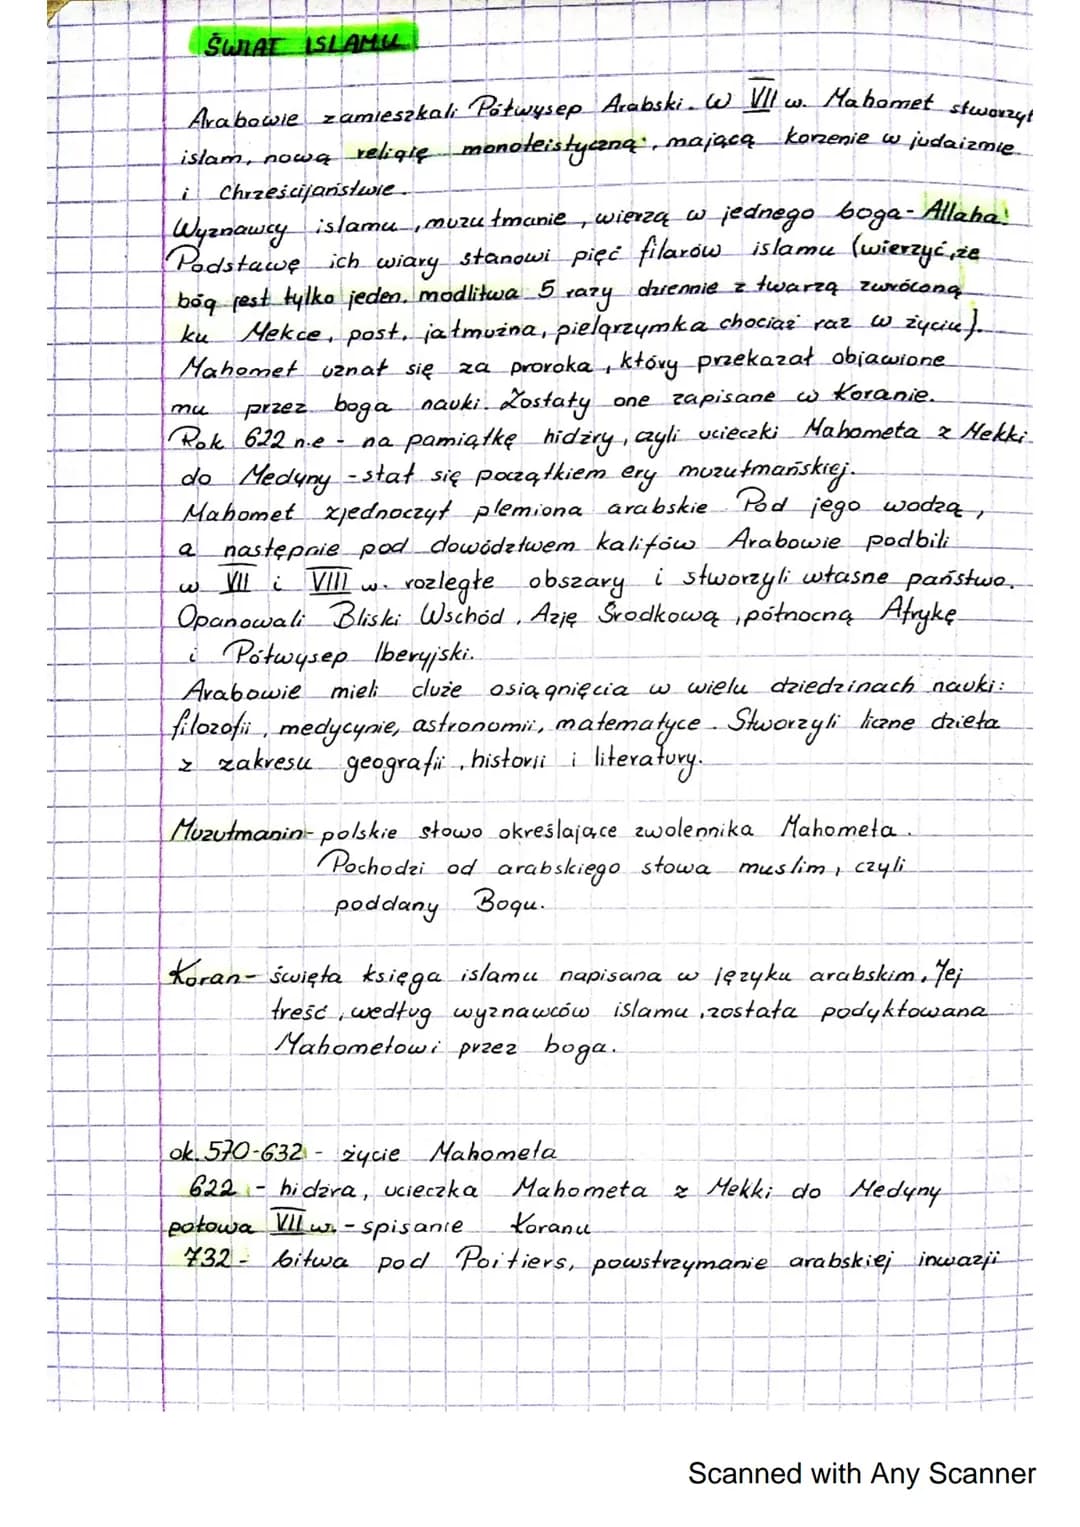 ŚWIAT ISLAMU
Arabowie zamieszkali Półwysep Arabski. W VII w. Mahomet stworzył
islam, nową religię monoteistyczną, mającą korzenie w judaizmie
i Chrześcijaństwie.
Wyznawcy islamu, muzułmanie, wierzą w jednego boga - Allaha!
Podstawę ich wiary stanowi pięć filarów islamu (wierzyć, że
bóg jest tylko jeden, modlitwa 5 razy dziennie z twarzą zwróconą
ku Mekce, post, jałmużna, pielgrzymka chociaż raz w życiu).
Mahomet uznał się za proroka, który przekazał objawione
mu przez boga nauki. Zostały one zapisane w Koranie.
Rok 622 n.e - na pamiątkę hidżry, czyli ucieczki Mahometa z Mekki
do Medyny - stał się początkiem ery muzułmańskiej.
Mahomet zjednoczył plemiona arabskie. Pod jego wodzą,
a następnie pod dowództwem kalifów Arabowie podbili
w VII i VIII w. rozległe obszary i stworzyli własne państwo.
Opanowali Bliski Wschód, Azję Środkową, północną Afrykę
i Półwysep Iberyjski.
Arabowie mieli duże osiągnięcia w wielu dziedzinach nauki:
filozofii, medycynie, astronomii, matematyce. Stworzyli liczne dzieła
z zakresu geografii, historii i literatury.
Muzułmanin - polskie słowo określające zwolennika Mahometa.
Pochodzi od arabskiego słowa muslim, czyli
poddany Bogu.
Koran - święta księga islamu napisana w języku arabskim. Jej
treść, według wyznawców islamu, została podyktowana
Mahometowi przez boga.
ok. 570-632 - życie Mahometa
622 - hidżra, ucieczka Mahometa z Mekki do Medyny
połowa VII w. - spisanie Koranu
732 - bitwa pod Poitiers, powstrzymanie arabskiej inwazji
Scanned with Any Scanner